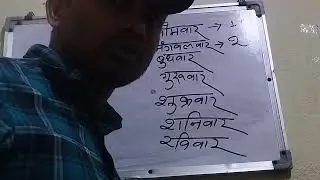 ोमवार → १
मंगलवार → २
बुधवार
गुरूवार
शुक्रवार
शनिवार
रविवार